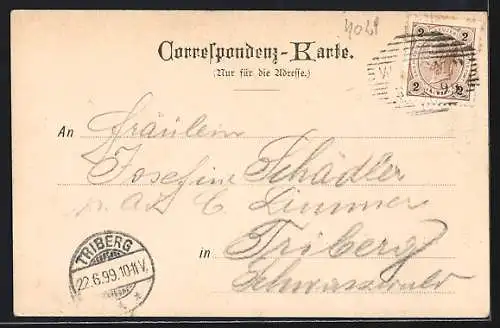 4021
Correspondenz-Karte.
(Nur für die Adresse.)
2 2
2 2
An Fräulein
Josefine Schädler
C.
in Triberg
Schwarzwald
TRIBERG
22.6.99.10-11V.